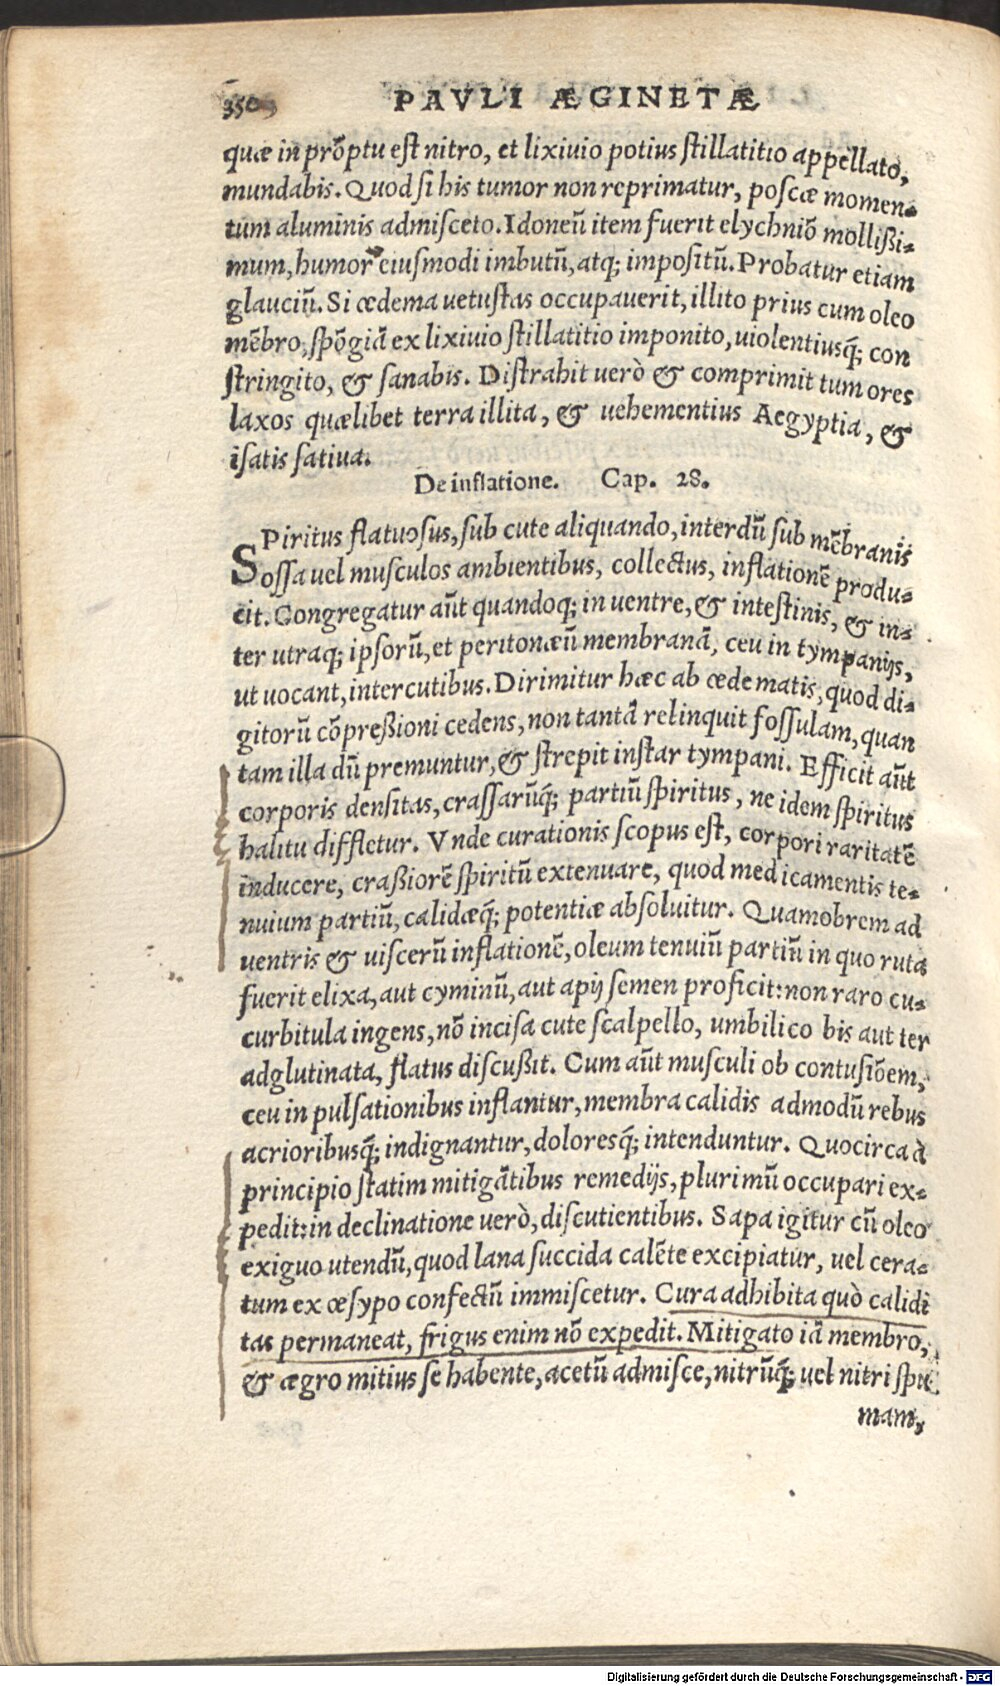 350
PAVLI ÆGINETÆ
quæ in prõptu est nitro, et lixiuio potius stillatitio appellato,
mundabis. Quod si his tumor non reprimatur, poscæ momen-
tum aluminis admisceto. Idoneũ item fuerit elychniõ mollißi-
mum, humore eiusmodi imbutũ, atq; impositũ. Probatur etiam
glauciũ. Si œdema uetustas occupauerit, illito prius cum oleo
mẽbro, spõgiã ex lixiuio stillatitio imponito, uiolentiusq́; con
stringito, & sanabis. Distrahit uerò & comprimit tumores
laxos quælibet terra illita, & uehementius Aegyptia, &
isatis satiua.
De inflatione. Cap. 28.
SPiritus flatuosus, sub cute aliquando, interdũ sub mẽbranis
ossa uel musculos ambientibus, collectus, inflationẽ produ-
cit. Congregatur aũt quandoq; in uentre, & intestinis, & in-
ter utraq; ipsorũ, et peritonæũ membranã, ceu in tympanijs,
ut uocant, intercutibus. Dirimitur hæc ab œdematis, quod di-
gitorũ cõpreßioni cedens, non tantã relinquit fossulam, quan
tam illa dũ premuntur, & strepit instar tympani. Efficit aũt
corporis densitas, crassarũq́; partiũ spiritus, ne idem spiritus
halitu diffletur. Vnde curationis scopus est, corpori raritatẽ
inducere, craßiorẽ spiritũ extenuare, quod medicamentis te-
nuium partiũ, calidæq́; potentiæ absoluitur. Quamobrem ad
uentris & uiscerũ inflationẽ, oleum tenuiũ partiũ in quo ruta
fuerit elixa, aut cyminũ, aut apij semen proficit: non raro cu-
curbitula ingens, nõ incisa cute scalpello, umbilico bis aut ter
adglutinata, flatus discußit. Cum aũt musculi ob contusiõem,
ceu in pulsationibus inflantur, membra calidis admodũ rebus
acrioribusq́; indignantur, doloresq́; intenduntur. Quocirca à
principio statim mitigãtibus remedijs, plurimũ occupari ex-
pedit: in declinatione uerò, discutientibus. Sapa igitur cũ oleo
exiguo utendũ, quod lana succida calẽte excipiatur, uel cera-
tum ex œsypo confectũ immiscetur. Cura adhibita quò calidi
tas permaneat, frigus enim nõ expedit. Mitigato iã membro,
& ægro mitius se habente, acetũ admisce, nitrũq́; uel nitri spu
mam,
Digitalisierung gefördert durch die Deutsche Forschungsgemeinschaft - DFG